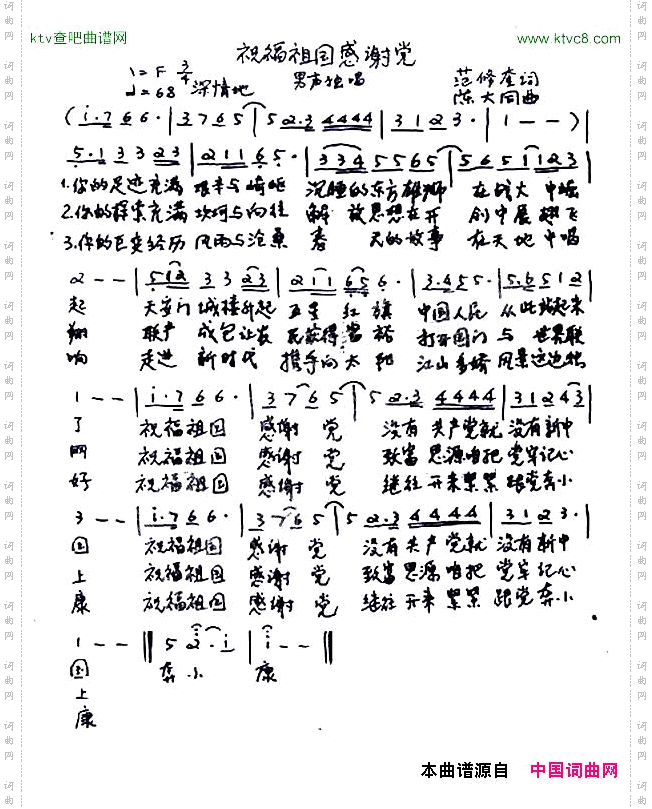 ktv查吧曲谱网
www.ktvc8.com
祝福祖国感谢党
1=F 3/4
男声独唱
♩=68 深情地
范修奎词
陈大同曲
(i·7 6 6·|3 7 6 5|5 2·3 4 4 4 4|3 1 2 3·|1 - -)|
5·1 3 3 2 3|2 1 1 6 5·|3 3 4 5 5 6 5|5 6 5 1 1 2 3|
1.你的足迹充满 与崎岖 沉睡的东方雄狮 在 大 中崛
2.你的探索充满 坎坷与向往 解 放思想在开 创中展翅飞
3.你的巨变经历 风雨与沧桑 春 天的故事 在天地 中唱
2 - -|5 1 2 3 3 2 3|2 1 1 6 5 6·|3·4 5 5|5·6 5 1 2|
起 天安门 城楼升起 五星 红 旗 中国人民 从此站起来
翔 联产 成包让农 民获得富裕 打开国门与 世界联
响 走进 新时代 携手向太 阳 江山多娇 风景这边独
1 - -|i·7 6 6·|3 7 6 5|5 2·3 4 4 4 4|3 1 2 4 3|
了 祝福祖国 感谢 党 没有 共产党就 没有新中
网 祝福祖国 感谢 党 致富 思源咱把 党牢记心
好 祝福祖国 感谢 党 继往 开来紧紧 跟党奔小
3 - -|i·7 6 6·|3 7 6 5|5 2·3 4 4 4 4|3 1 2 3·|
国 祝福祖国 感谢 党 没有共产党就 没有新中
上 祝福祖国 感谢 党 致富思源咱把 党牢记心
康 祝福祖国 感谢 党 继往开来紧紧 跟党奔小
1 - -‖5 2·i|i - -‖
国 奔小 康
上
康
本曲谱源自 中国词曲网